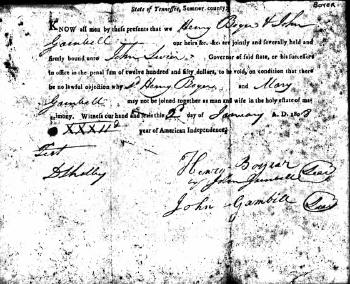 BOYER
State of Tennessee, Sumner county.
KNOW all men by these presents that we Henry Boyer & John
Gambell our heirs &c. &c are jointly and severally held and
firmly bound unto John Sevier Governor of said state, or his successors
in office in the penal sum of twelve hundred and fifty dollars, to be void, on condition that there
be no lawful objection why Henry Boyer and Mary
Gambell may not be joined together as man and wife in the holy estate of mat
rimony. Witness our hand and seals this 3d day of January A. D. 180
XXXII year of American Independence.
Test
D Shelby
Henry Boyear
by John Gambell Seal
John Gambill Seal